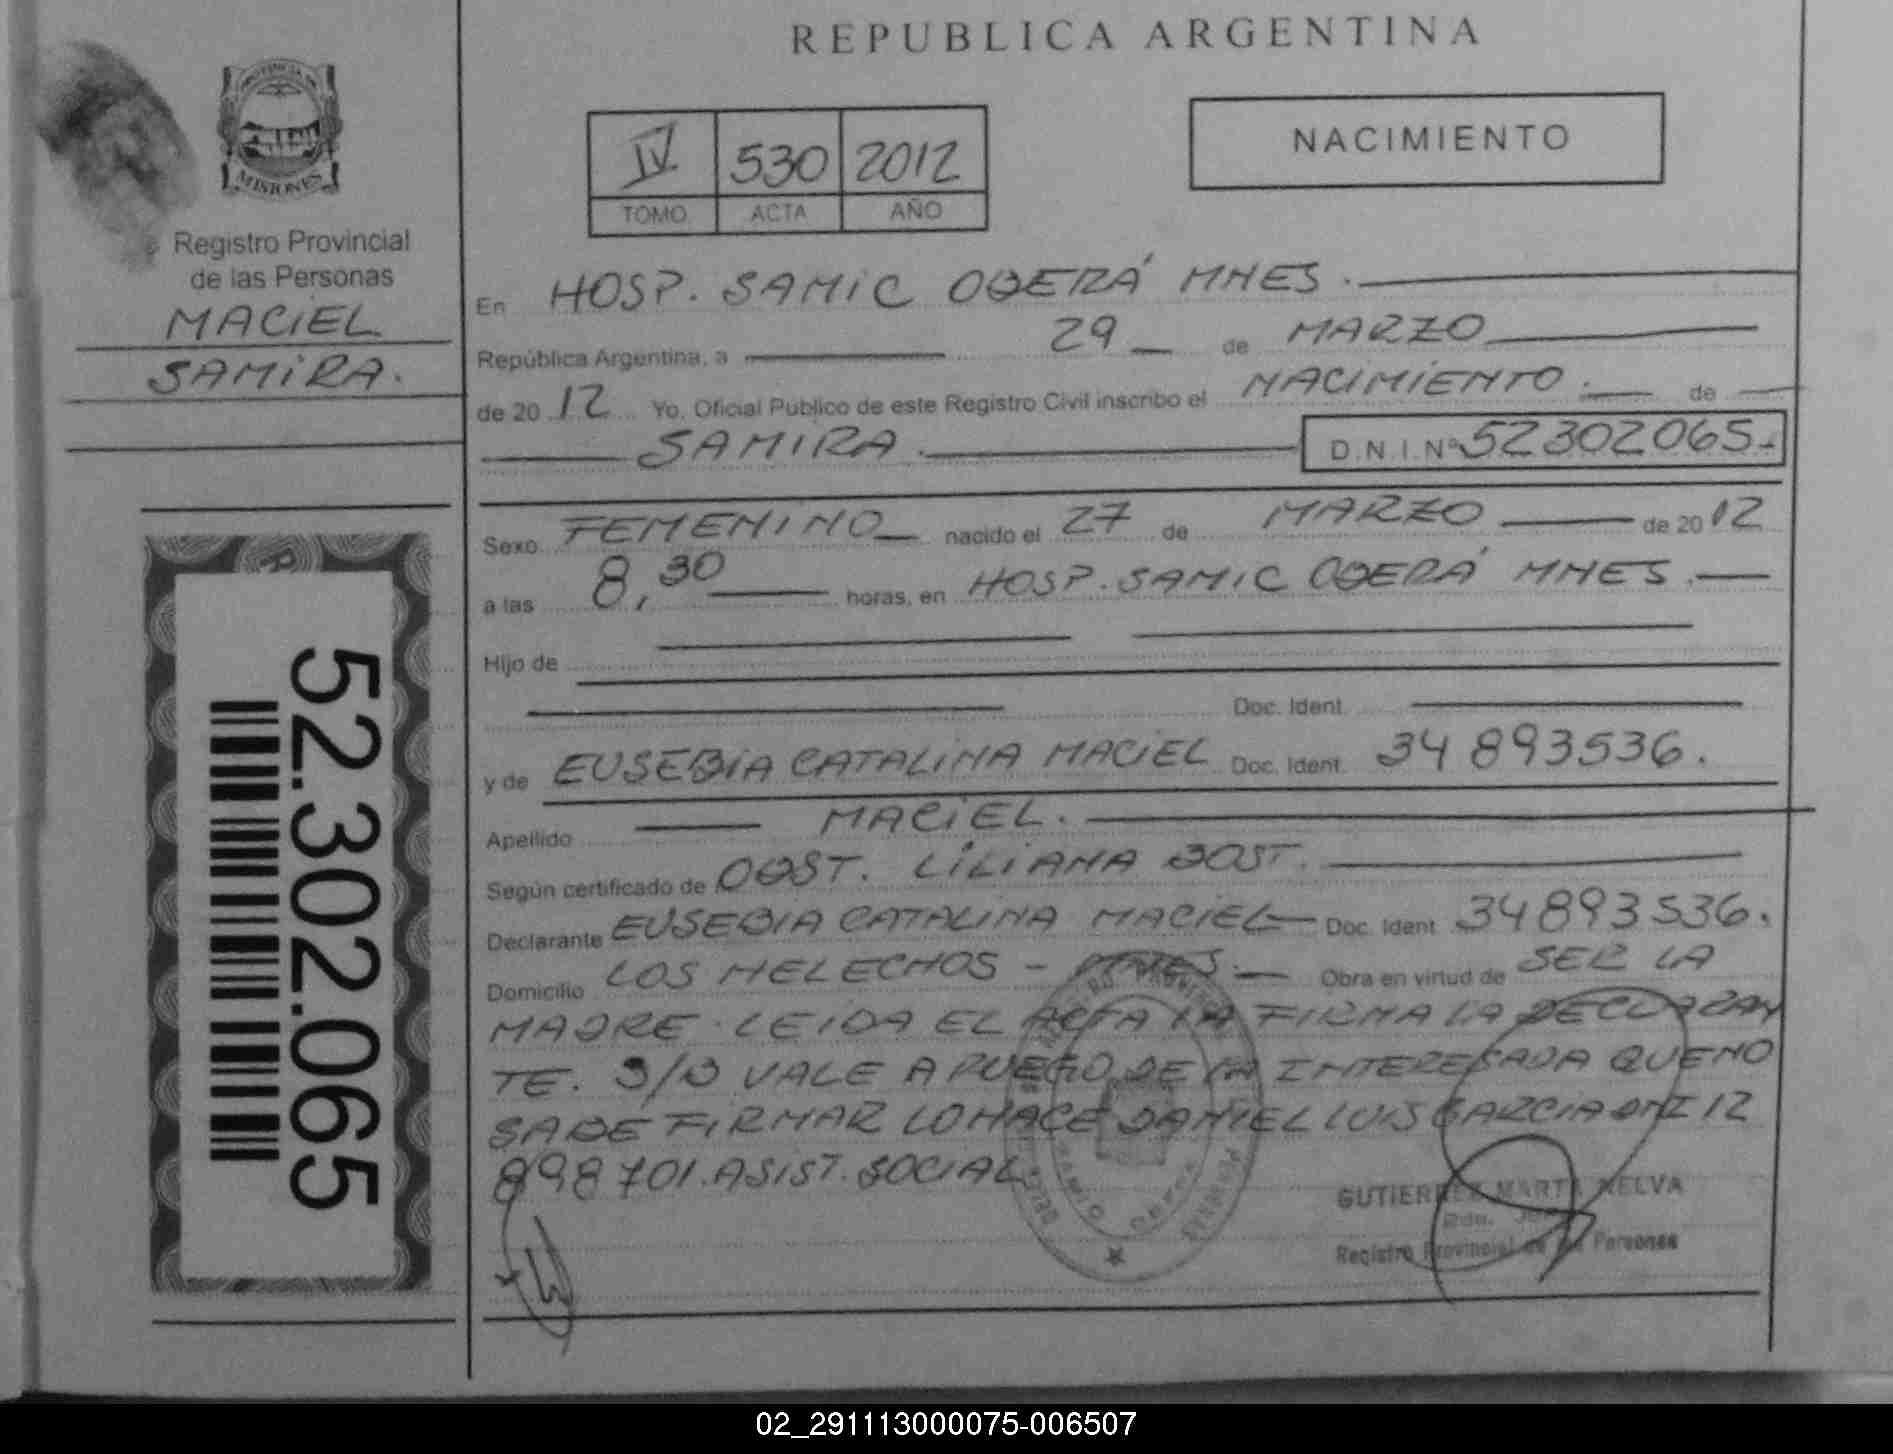 REPUBLICA ARGENTINA
PROVINCIA DE
MISIONES
Registro Provincial
de las Personas
MACIEL
SAMIRA.
52.302.065
IV 530 2012
TOMO ACTA AÑO
NACIMIENTO
En HOSP. SAMIC OBERÁ MNES.
República Argentina, a 29 de MARZO
de 2012 Yo, Oficial Público de este Registro Civil inscribo el NACIMIENTO. de
SAMIRA. D.N.I.Nº 52302065.
Sexo FEMENINO nacido el 27 de MARZO de 2012
a las 8,30 horas, en HOSP. SAMIC OBERÁ MNES.
Hijo de
Doc. Ident.
y de EUSEBIA CATALINA MACIEL Doc. Ident. 34893536.
Apellido MACIEL.
Según certificado de OBST. LILIANA BOST.
Declarante EUSEBIA CATALINA MACIEL Doc. Ident 34893536.
Domicilio LOS HELECHOS - MNES. Obra en virtud de SER LA
MADRE. LEIDA EL ACTA LA FIRMA LA DECLARAN
TE. S/B VALE A RUEGO DE LA INTERESADA QUE NO
SABE FIRMAR LO HACE DANIEL LUIS GARCIA DNI 12
898701. ASIST. SOCIAL
GUTIERREZ MARTA NELVA
Registro Provincial de las Personas
02_291113000075-006507